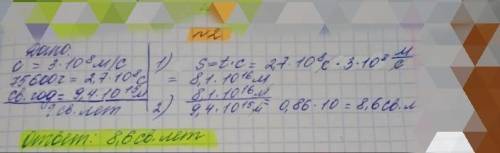 №2
Дано:
υ = 3·10⁸ м/с
75600ч = 2,7·10⁸с
св.год = 9,4·10¹⁵м
св. лет
1) S=t·c= 2,7·10⁸с·3·10⁸ м/с
= 8,1·10¹⁶м
2) 8,1·10¹⁶м / 9,4·10¹⁵м 0,86·10=8,6св.л
Ответ: 8,6св.лет